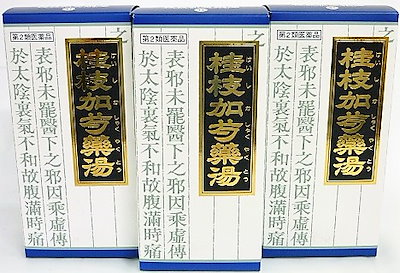 第2類医薬品
桂枝加芍藥湯
けいしかしゃくやくとう
表邪未罷醫下之邪因乘虛傳
於太陰裏氣不和故腹滿時痛
第2類医薬品
桂枝加芍藥湯
けいしかしゃくやくとう
表邪未罷醫下之邪因乘虛傳
於太陰裏氣不和故腹滿時痛
第2類医薬品
桂枝加芍藥湯
けいしかしゃくやくとう
表邪未罷醫下之邪因乘虛傳
於太陰裏氣不和故腹滿時痛